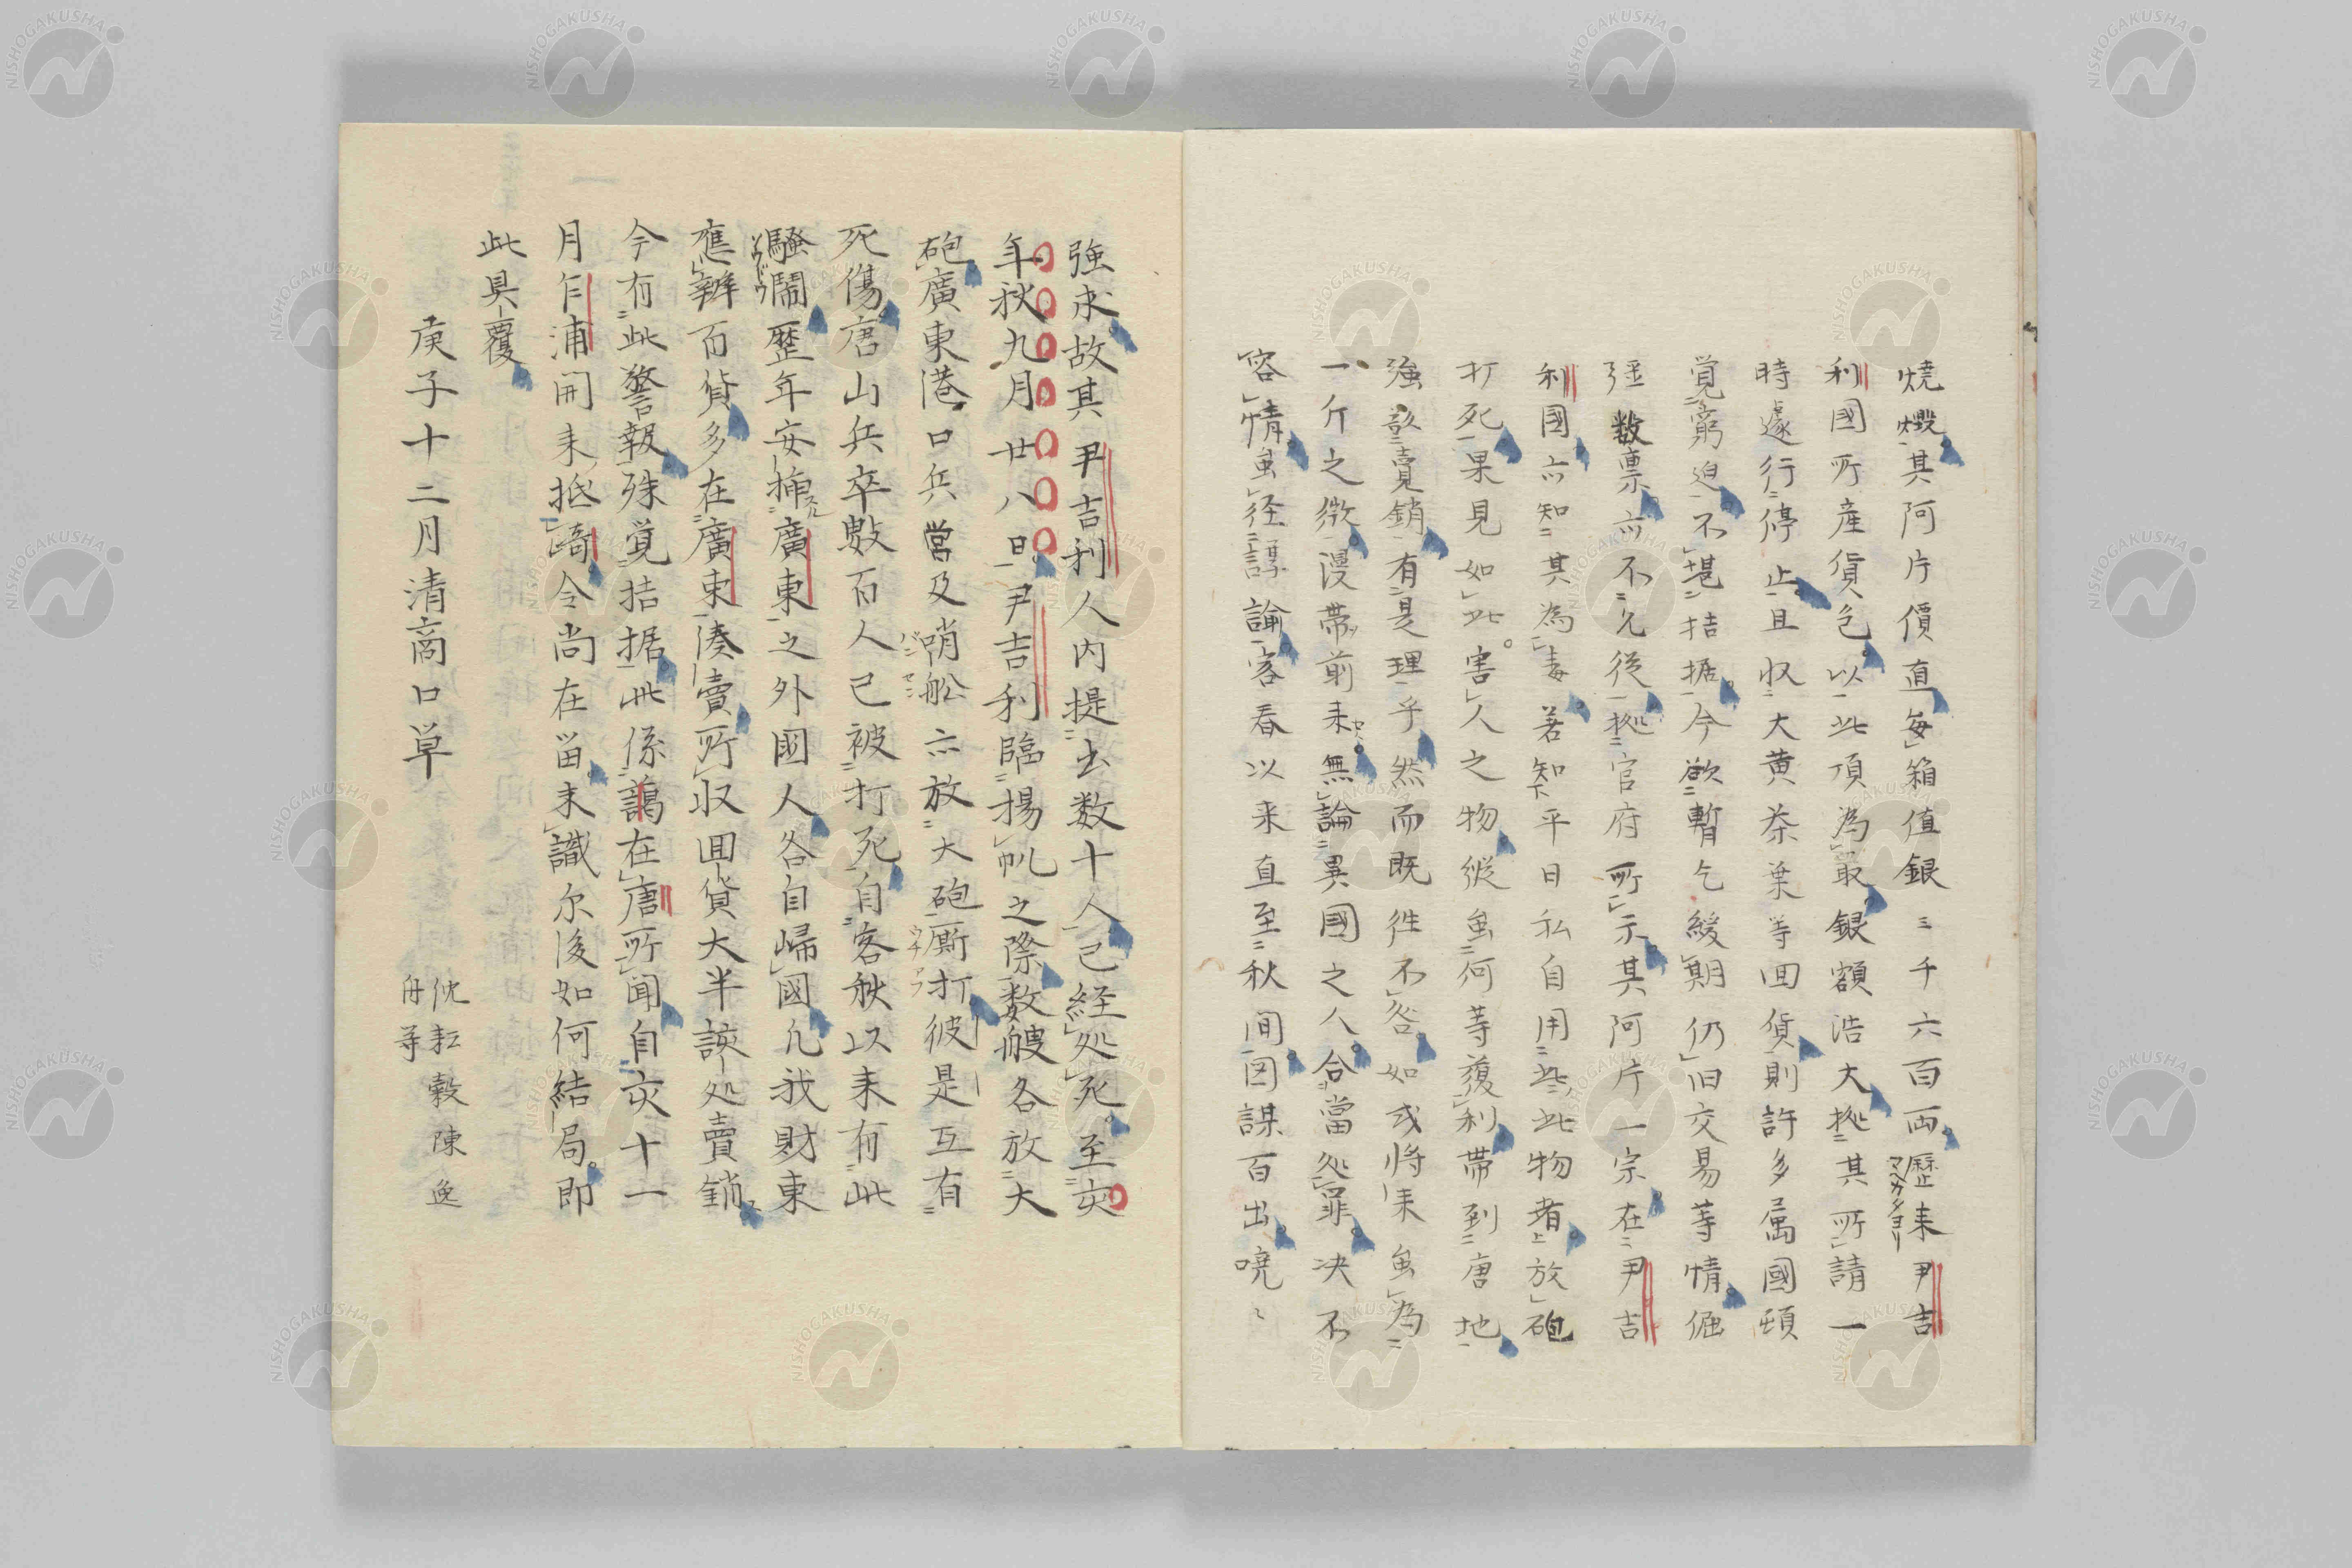 燒燬其阿片價直每箱值銀三千六百両歷来尹吉
利國所產貨包以此頂為最銀額浩大拠其所請一
時遽行停止且収大黃茶葉等回貨則許多属國頓
覚窮迫不堪拮据今欲暫乞緩期仍旧交易等情倔
強数禀亦不允従拠官府所示其阿片一宗在尹吉
利國亦知其為毒若知平日私自用些此物者放砲
打死果見如此害人之物縦虽何等獲利帯到唐地
強欲賣銷有是理乎然而既徃不咎如或将来虽為
一斤之微漫帯前来無論異國之人合當処罪决不
容情虽径諄諭客春以来直至秋间图謀百出哓〻
強求故其尹吉利人内提出数十人已経処死至亥
年秋九月廿八日尹吉利臨揚帆之際数艘各放大
砲廣東港口兵営及哨船亦放大砲厮打彼是互有
死傷唐山兵卒數百人已被打死自客秋以来有此
騷鬧歷年安揷廣東之外國人各自帰國凢我財東
應辦百貨多在廣東湊賣所収回貨大半該処賣銷
今有此警報殊覚拮据此係謁在唐所聞自亥十一
月乍浦開来抵﨑今尚在畄未識尔後如何結局即
此具覆
庚子十二月清商口单
沈耘穀陳逸
舟等
マヘカタヨリ
バンセン
ウチアフ
ソウドウ
NISHOGAKUSHA